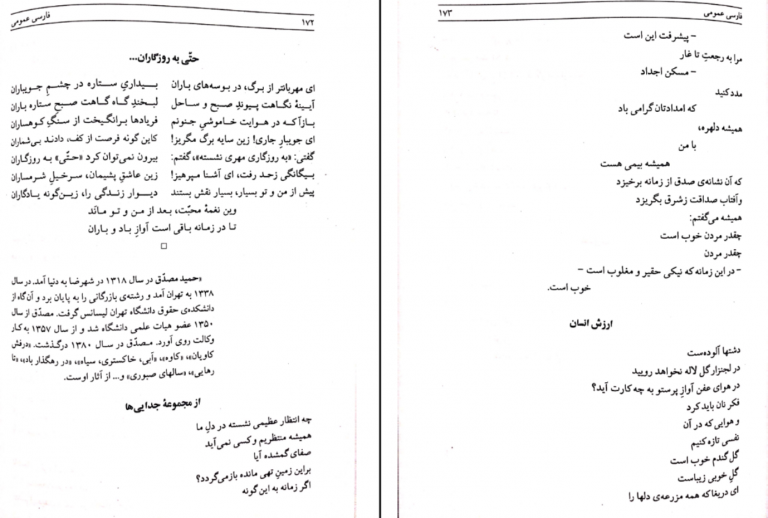 ۱۷۲ فارسی عمومی
حتّی به روزگاران...
ای مهربانتر از برگ، در بوسه‌های باران بیداریِ ستاره در چشمِ جویباران
آیینهٔ نگاهت پیوندِ صبح و ساحل لبخندِ گاه گاهت صبحِ ستاره باران
بازآ که در هوایت خاموشیِ جنونم فریادها برانگیخت از سنگِ کوهساران
ای جویبارِ جاری! زین سایه برگ مگریز! کاین گونه فرصت از کف، دادند بی‌شماران
گفتی: «به روزگاری مهری نشسته»، گفتم: بیرون نمی‌توان کرد «حتّی» به روزگاران
بیگانگی زحد رفت، ای آشنا مپرهیز! زین عاشقِ پشیمان، سرخیلِ شرمساران
پیش از من و تو بسیار، بسیار نقش بستند دیوارِ زندگی را، زین‌گونه یادگاران
وین نغمهٔ محبّت، بعد از من و تو ماند
تا در زمانه باقی است آوازِ باد و باران
«حمید مصدّق در سال ۱۳۱۸ در شهرضا به دنیا آمد. در سال
۱۳۳۸ به تهران آمد و رشته‌ی بازرگانی را به پایان برد و آن‌گاه از
دانشکده‌ی حقوق دانشگاه تهران لیسانس گرفت. مصدّق از سال
۱۳۵۰ عضو هیات علمی دانشگاه شد و از سال ۱۳۵۷ به کار
وکالت روی آورد. مصدّق در سال ۱۳۸۰ درگذشت. «درفش
کاویان»، «کاوه»، «آبی، خاکستری، سیاه»، «در رهگذار باد»، «تا
رهایی»، «سالهای صبوری» و... از آثار اوست.
از مجموعهٔ جدایی‌ها
چه انتظار عظیمی نشسته در دلِ ما
همیشه منتظریم و کسی نمی‌آید
صفای گمشده آیا
براین زمینِ تهی مانده بازمی‌گردد؟
اگر زمانه به این گونه
۱۷۳ فارسی عمومی
– پیشرفت این است
مرا به رجعتِ تا غار
– مسکن اجداد
مدد کنید
که امدادتان گرامی باد
همیشه دلهره،
با من
همیشه بیمی هست
که آن نشانه‌ی صدق از زمانه برخیزد
وآفتاب صداقت زشرق بگریزد
همیشه می‌گفتم:
چقدر مردن خوب است
چقدر مردن
– در این زمانه که نیکی حقیر و مغلوب است –
خوب است.
ارزش انسان
دشتها آلوده‌ست
در لجنزار گل لاله نخواهد رویید
در هوای عفن آوازِ پرستو به چه کارت آید؟
فکر نان باید کرد
و هوایی که در آن
نفسی تازه کنیم
گل گندم خوب است
گل خوبی زیباست
ای دریغا که همه مزرعه‌ی دلها را